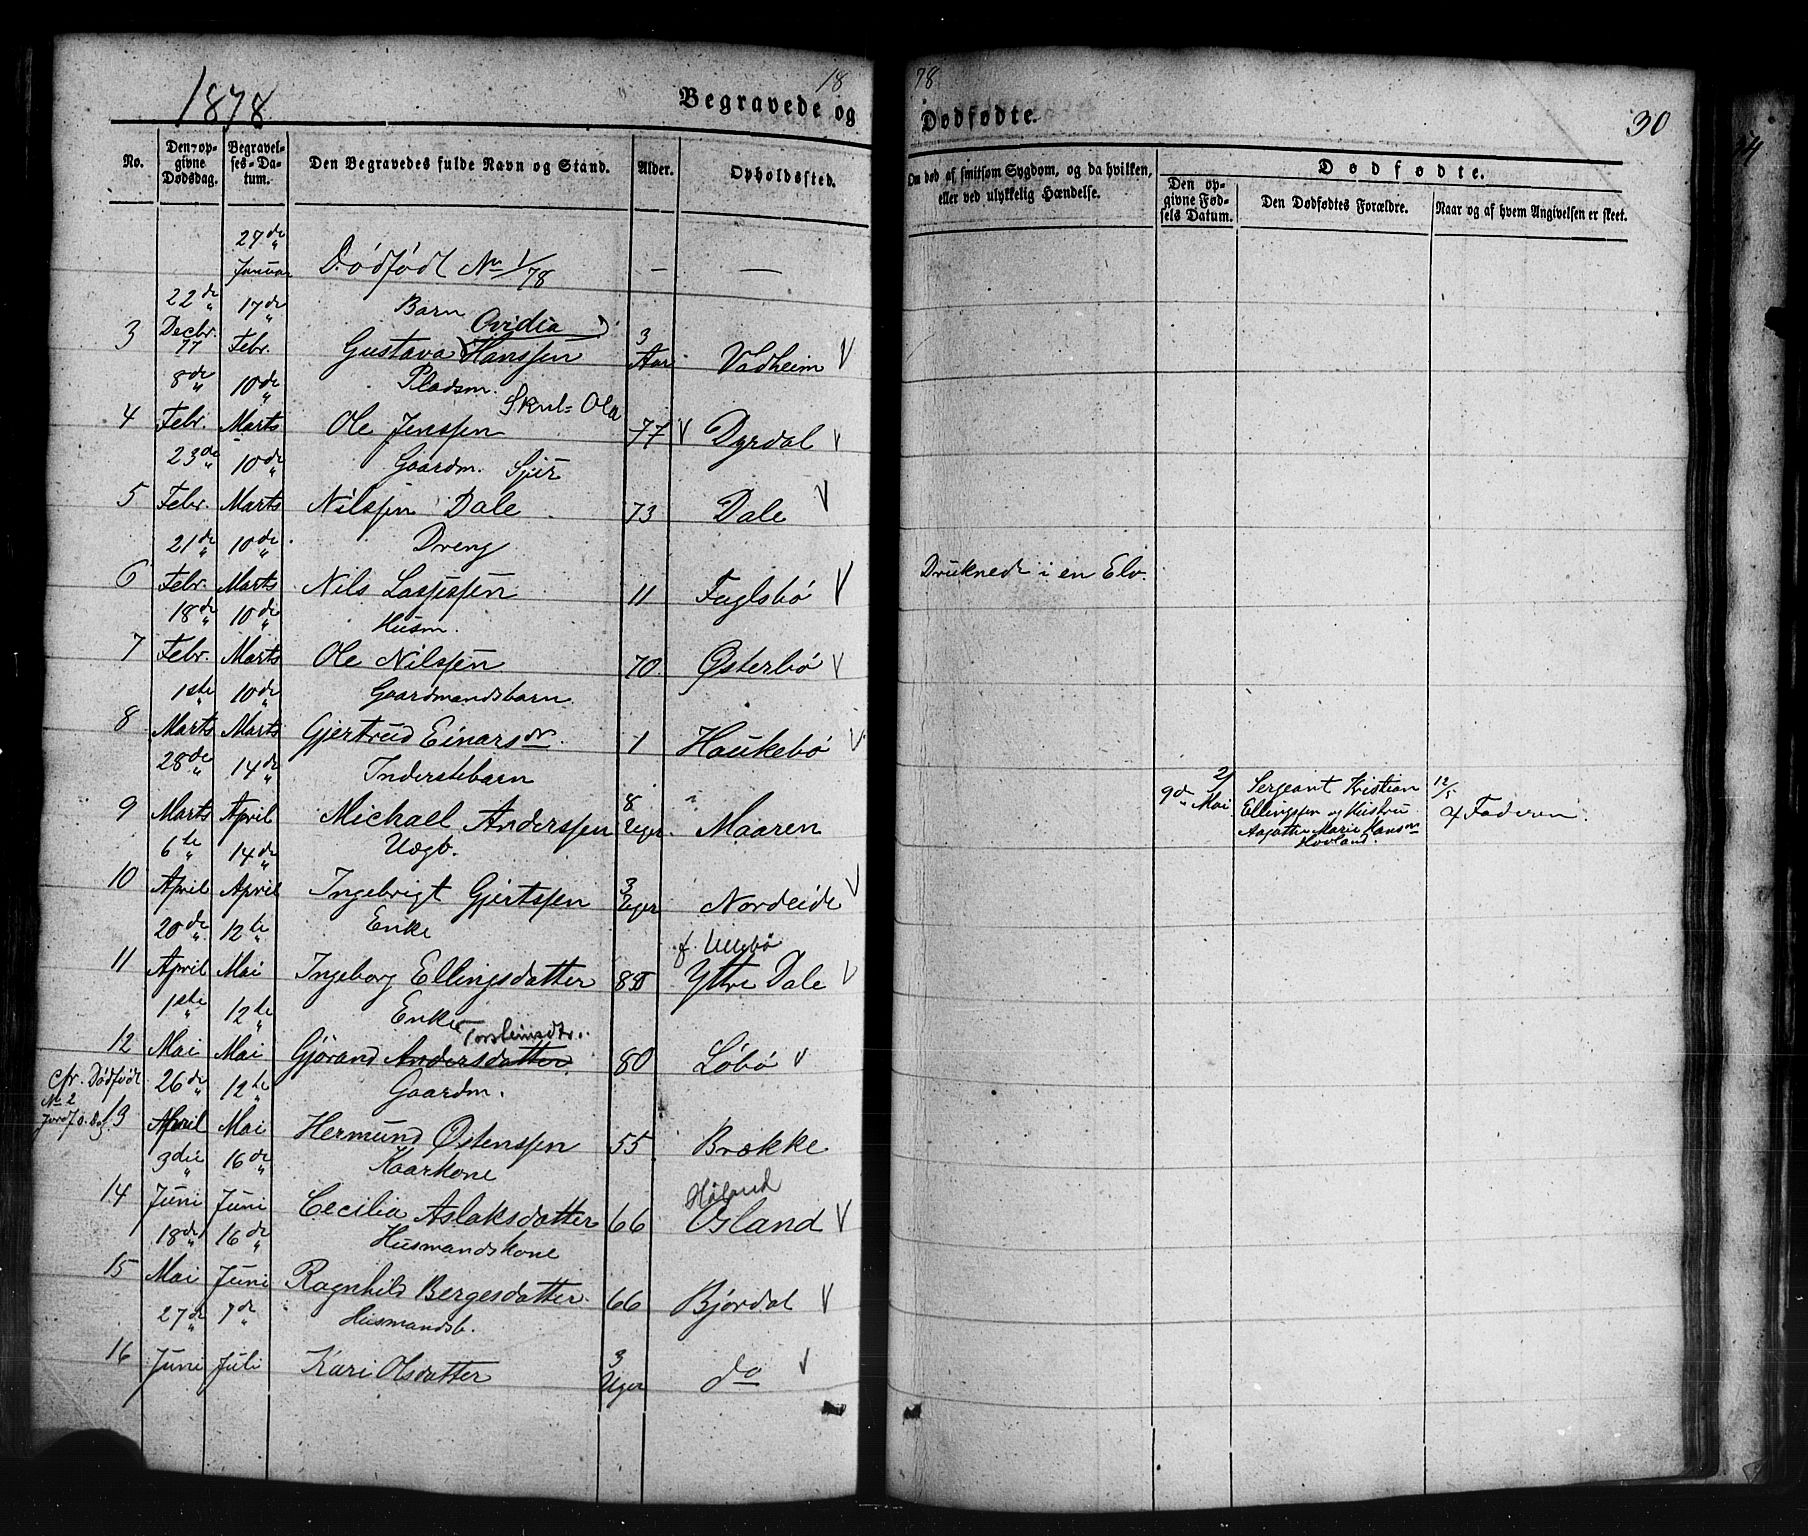 1878
18
Begravede og
No.
Den opgivne Dødsdag.
Begravelses-Datum.
Den Begravedes fulde Navn og Stand.
Alder.
Opholdssted.
27de Januar Dødfødt No 1/78 — —
3 22de Decbr. 77 17de Febr. Barn Gustava Ovidia Hanssen 3 Aar Vadheim V
4 8de Febr. 10de Marts Pladsm. Ole Jenssen Skul-Ola 77 V Dyrdal V
5 23de Febr. 10de Marts Gaardm. Sjur Nilssen Dale 73 Dale V
6 21de Febr. 10de Marts Dreng Nils Lassessen 11 Fuglsbø V
7 18de Febr. 10de Marts Husm. Ole Nilssen 70 Østerbø V
8 1ste Marts 10de Marts Gaardmandsbarn Gjertrud Einarsdr. 1 Haukebø V
9 28de Marts 14de April Inderstebarn Michael Anderssen 8 Uger Maaren
10 6te April 14de April Uægb. Ingebrigt Gjertssen 3 Uger Nordeide V
11 20de April 12te Mai Enke Ingeborg Ellingsdatter 85 f. Lillebø Yttre Dale V
12 1ste Mai 12te Mai Enke Gjørand Andersdatter Torsteinsdtr. 80 Løbø V
cfr. Dødfødt No 2
13 26de April 12te Mai Gaardm. Hermund Østenssen 55 Brække
14 3die Juni 16de Juni Kaarkone Cecilia Aslaksdatter 66 Høland Osland V
15 18de Mai 16de Juni Husmandskone Ragnhild Bergesdatter 66 Bjordal V
16 27de Juni 7de Juli Husmandsb. Kari Olsdatter 3 Uger do V
78.
Dødfødte.
30
Om død af smitsom Sygdom, og da hvilken, eller ved ulykkelig Hændelse.
Dødfødte.
Den opgivne Fødsels Datum.
Den Dødfødtes Forældre.
Naar og af hvem Angivelsen er skeet.
Druknede i en Elv.
2/ 9de Mai Sergeant Kristian 12/5
Ellingssen og Hustru af Faderen.
Aagathe Marie Hansdr
Hovland.